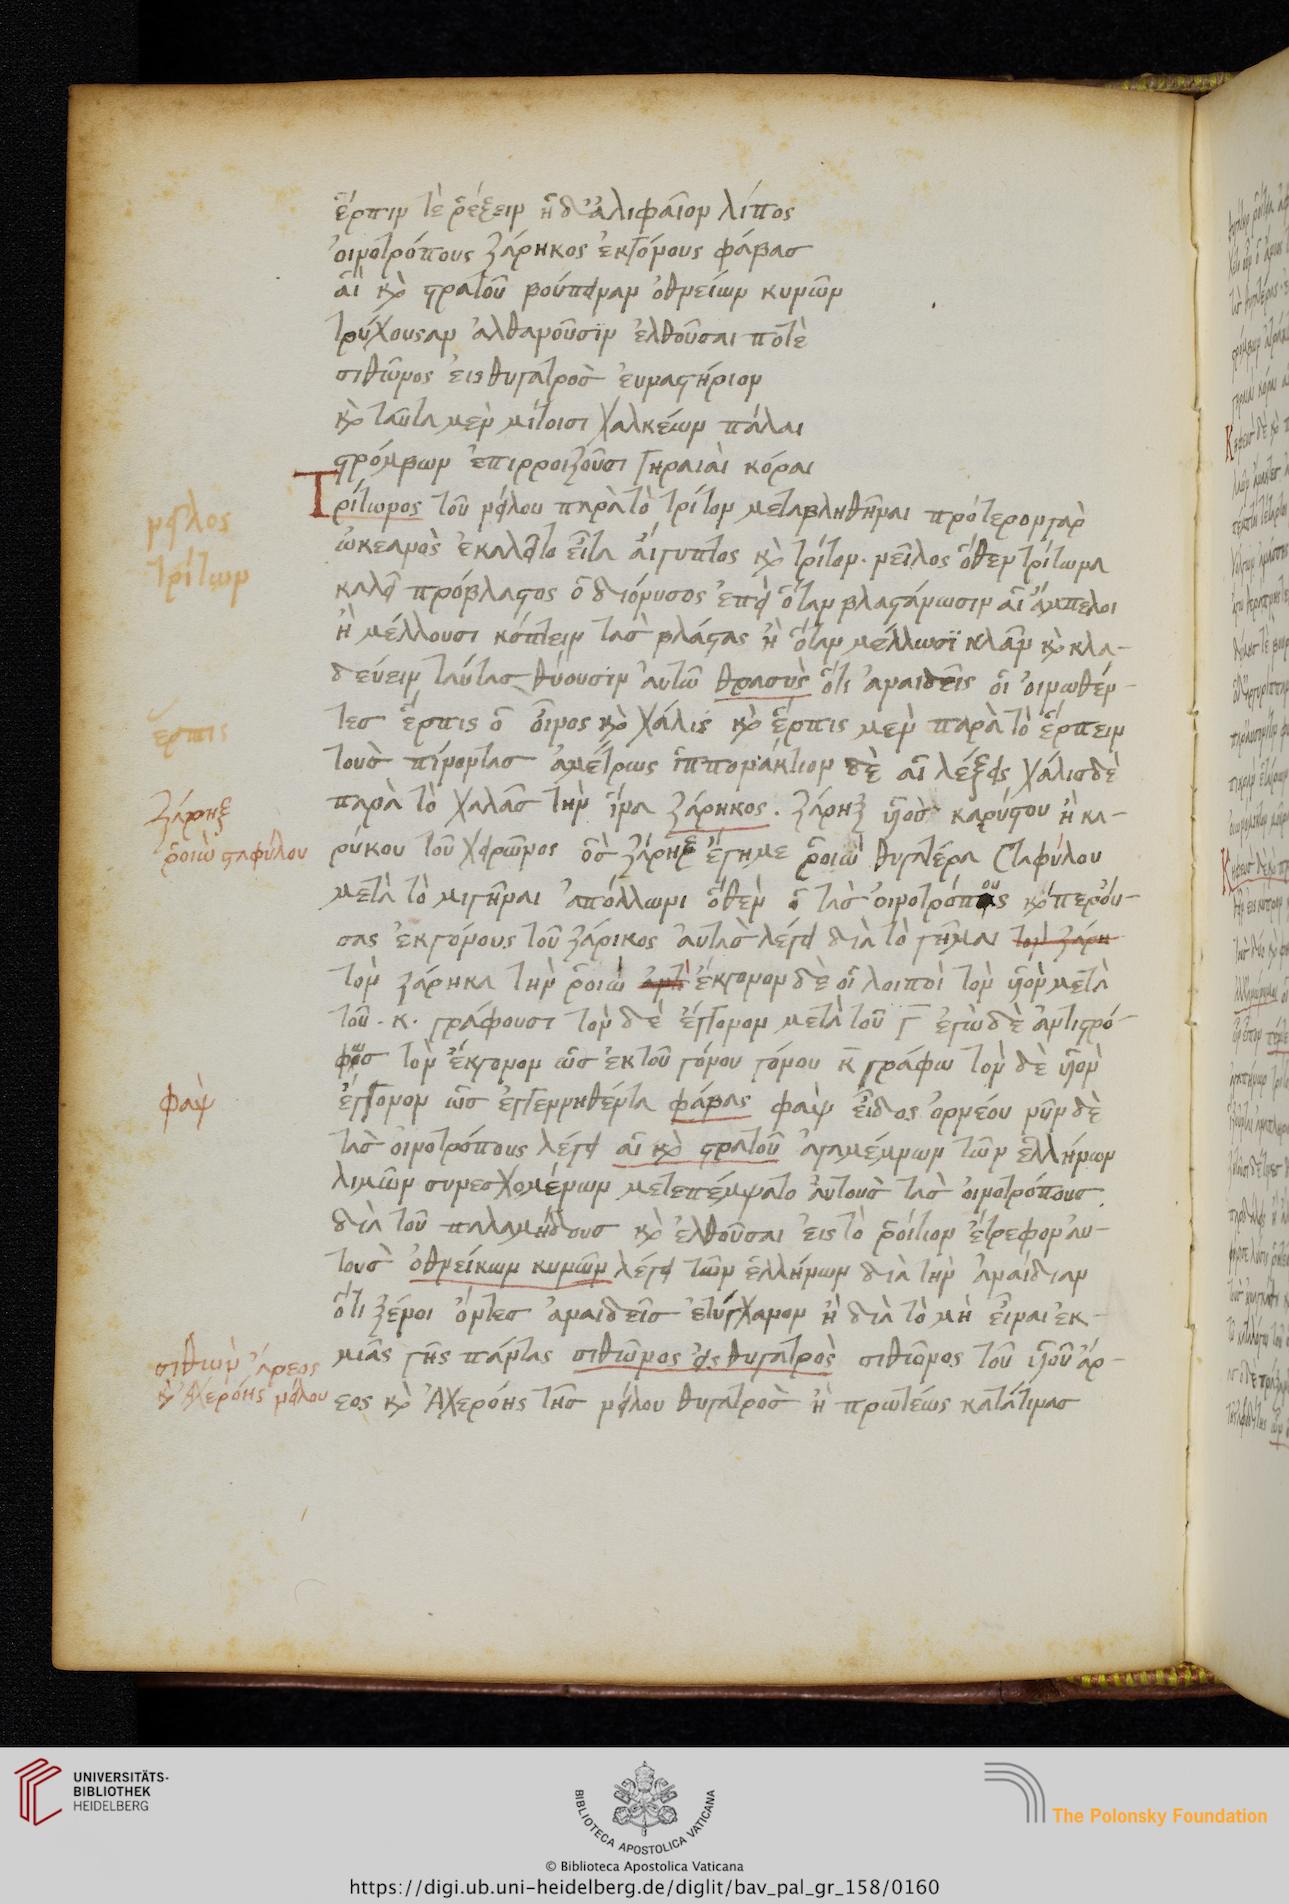 ἕρπιν τὲ ῥέξειν ἠδ' ἀλιφαῖον λίπος
οἰνοτρόπους ζάρηκος ἐκτόμους φάβας
αἳ καὶ στρατοῦ βούπειναν ὀθνείων κυνῶν
τρύχουσαν ἀλθανοῦσιν ἐλθοῦσαι ποτὲ
σιθῶνος εἰς θυγατρὸς εὐναστήριον
καὶ ταῦτα μὲν μίτοισι χαλκέων πάλαι
στρόμβων ἐπιρροιζοῦσι γηραιαὶ κόραι
Τρίτωνος τοῦ νείλου παρὰ τὸ τρίτον μεταβληθῆναι πρότερον γὰρ
νεῖλος
ὠκεανὸς ἐκαλεῖτο εἶτα αἴγυπτος καὶ τρίτον. νεῖλος ὅθεν τρίτωνα
τρίτων
καλεῖ πρόβλαστος ὁ διόνυσος ἐπεὶ ὅταν βλαστάνωσιν αἱ ἄμπελοι
ἢ μέλλουσι κόπτειν τὰς βλάστας ἢ ὅταν μέλλωσϊ κλᾶν καὶ κλα-
δεύειν ταύτας θύουσιν αὐτῶ θρασυς ὅτι ἀναιδεῖς οἱ οἰνωθέν-
τες ἕρπις ὁ οἶνος καὶ χάλις καὶ ἕρπις μὲν παρὰ τὸ ἕρπειν
ἕρπις
τοὺς πίνοντας ἀμέτρως ἱππονάκτιον δὲ αἱ λέξεις χάλις δὲ
παρὰ τὸ χαλᾶν τὴν ἵνα ζάρηκος. ζάρηξ υἱὸς καρύστου ἢ κα-
ζάρηξ
ρύκου τοῦ χείρωνος ὃς ζάρηξ ἔγημε ῥοιὼ θυγατέρα σταφύλου
ῥοιὼ σταφύλου
μετὰ τὸ μιγῆναι ἀπόλλωνι ὅθεν τὰς οἰνοτρόπους
σας ἐκγόνους τοῦ ζάρικος αὐτὰς λέγει διὰ τὸ γῆμαι τὸν ζάρη
τὸν ζάρηκα τὴν ῥοιὼ ἔκγονον δὲ οἱ λοιποὶ τὸν υἱὸν μετὰ
τοῦ. κ. γράφουσι τὸν δὲ ἔγγονον μετὰ τοῦ γ ἐγὼ δὲ ἀντιστρό-
φως τὸν ἔκγονον ὡς ἐκ τοῦ γόνου γόνου κ γράφω τὸν δὲ υἱὸν
ἔγγονον ὡς ἐγγεννηθέντα φάβας φαψ εἶδος ὀρνέου νῦν δὲ
φαψ
τὰς οἰνοτρόπους λέγει αἳ καὶ στρατοῦ ἀγαμέμνων τῶν ἑλλήνων
λιμῶν συνεσχομένων μετεπέμψατο αὐτοὺς τὰς οἰνοτρόπους
διὰ τοῦ παλαμήδους καὶ ἐλθοῦσαι εἰς τὸ ῥοίτιον ἔτρεφον αὐ-
τοὺς ὀθνείκων κυνῶν λέγει τῶν ἑλλήνων διὰ τὴν ἀναίδιαν
ὅτι ξένοι ὄντες ἀναιδεῖς ἐτύγχανον ἢ διὰ τὸ μὴ εἶναι ἐκ-
μιᾶς γῆς πάντας σιθῶνος εἰς θυγατρὸς σιθῶνος τοῦ υἱοῦ ἄρ-
σιθων ἄρεος
εος καὶ Ἀχερόης τῆς νείλου θυγατρὸς ἢ πρωτέως κατά τινας
καὶ Ἀχερόης νείλου
UNIVERSITÄTS-
BIBLIOTHEK
HEIDELBERG
BIBLIOTECA APOSTOLICA VATICANA
The Polonsky Foundation
© Biblioteca Apostolica Vaticana
https://digi.ub.uni-heidelberg.de/diglit/bav_pal_gr_158/0160